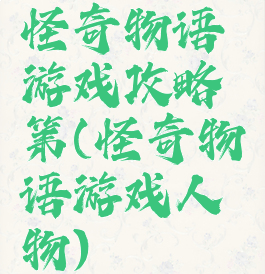 怪奇物语
游戏攻略
第(怪奇物
语游戏人
物)